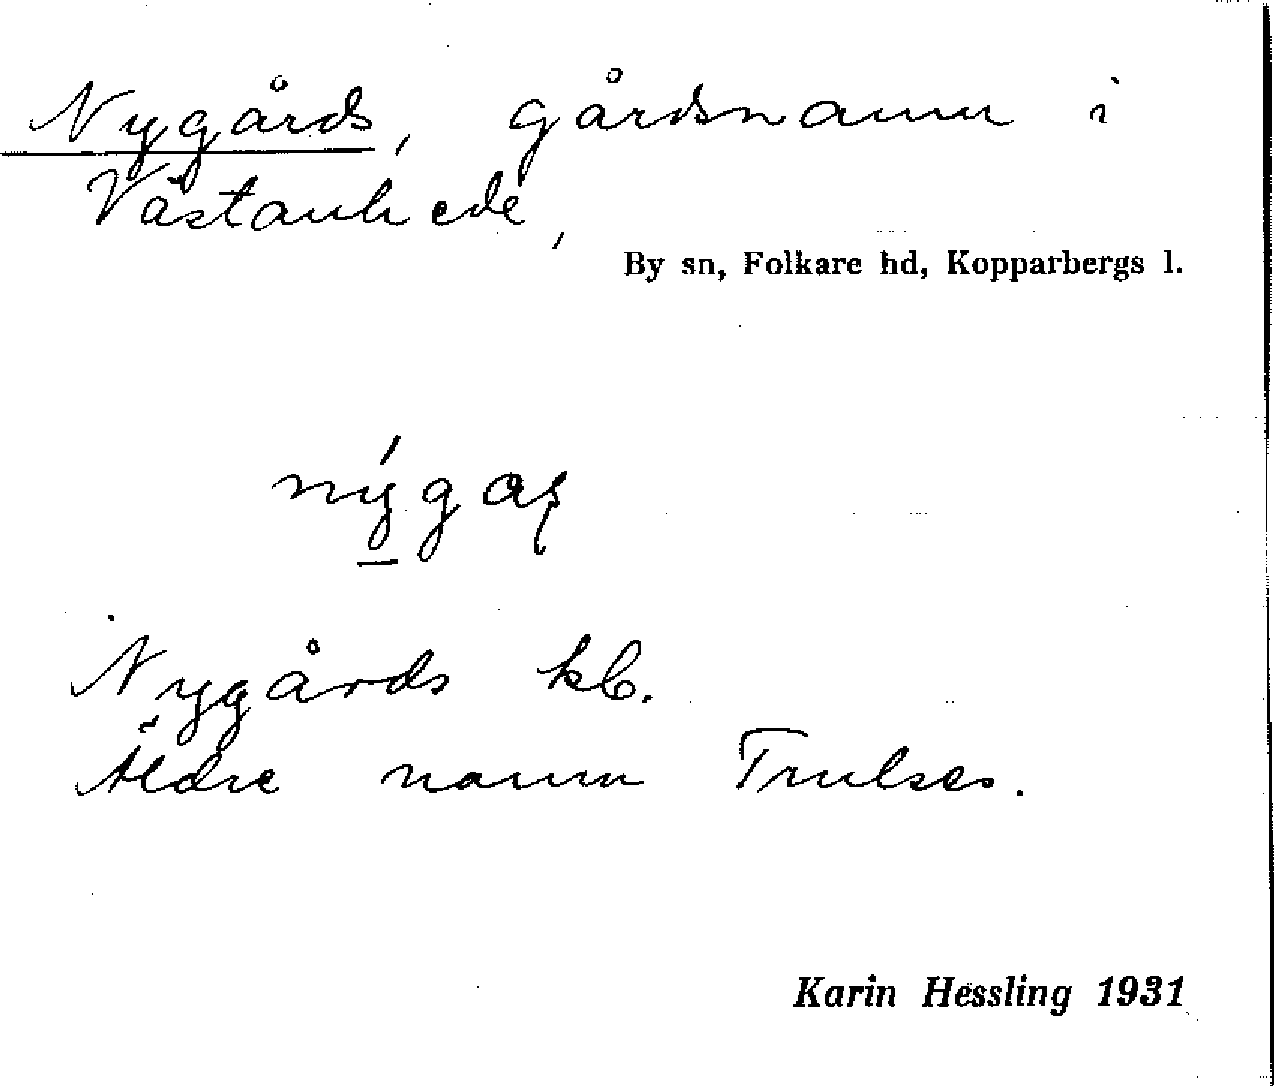 Nygårds, gårdsnamn i
Västanhede,
By sn, Folkare hd, Kopparbergs l.
Nygårds kb.
Äldre namn Trulses.
Karin Hessling 1931